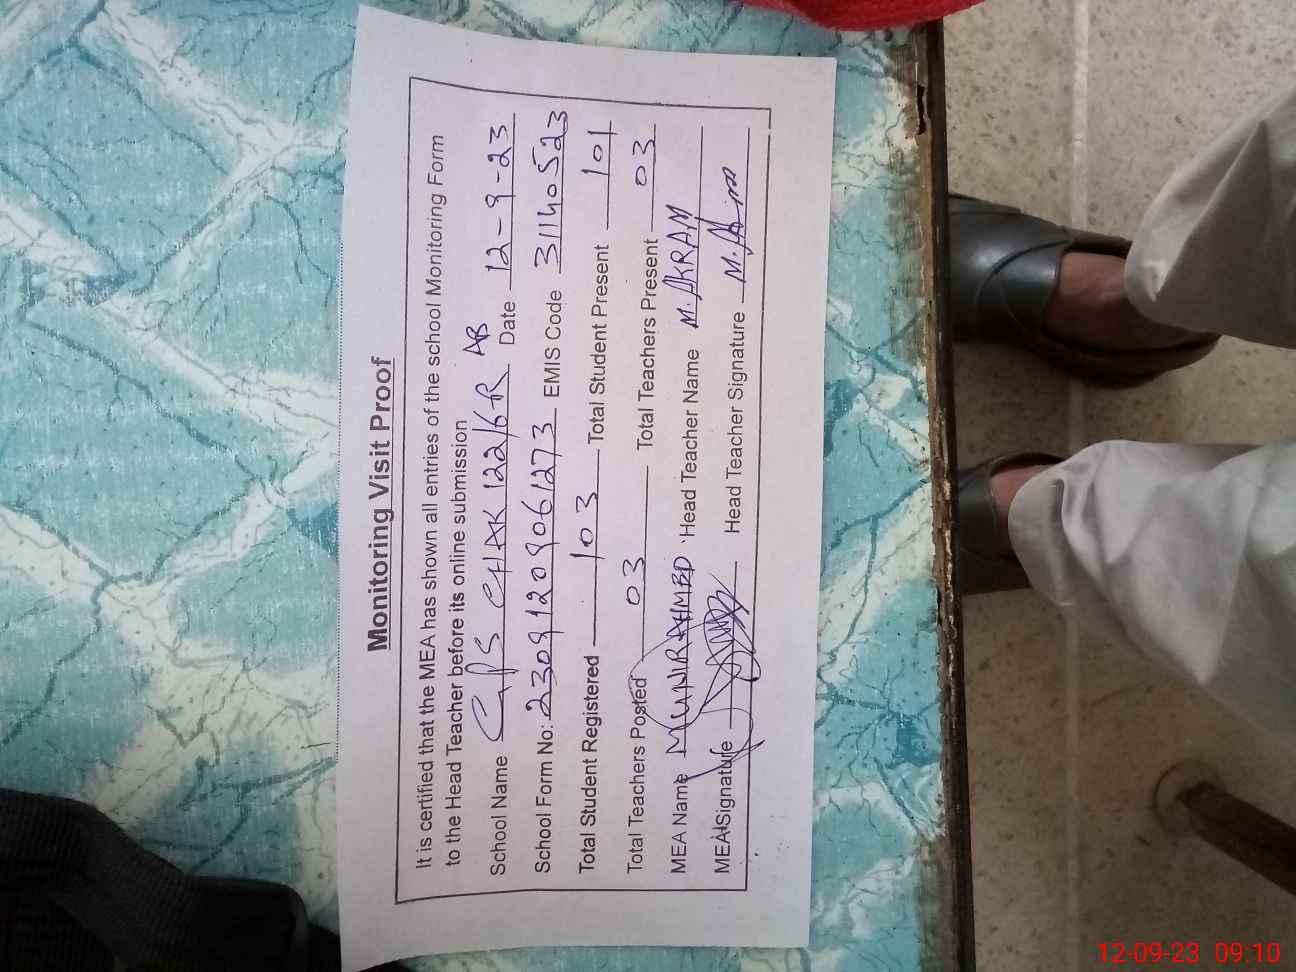 Monitoring Visit Proof
It is certified that the MEA has shown all entries of the school Monitoring Form
to the Head Teacher before its online submission
School Name GPS CHAK 122/6-R AB Date 12-9-23
School Form No: 23091209061273 EMIS Code 31140523
Total Student Registered 103 Total Student Present 101
Total Teachers Posted 03 Total Teachers Present 03
MEA Name MUNIR AHMED Head Teacher Name M. AKRAM
MEA Signature Head Teacher Signature M.
12-09-23 09:10